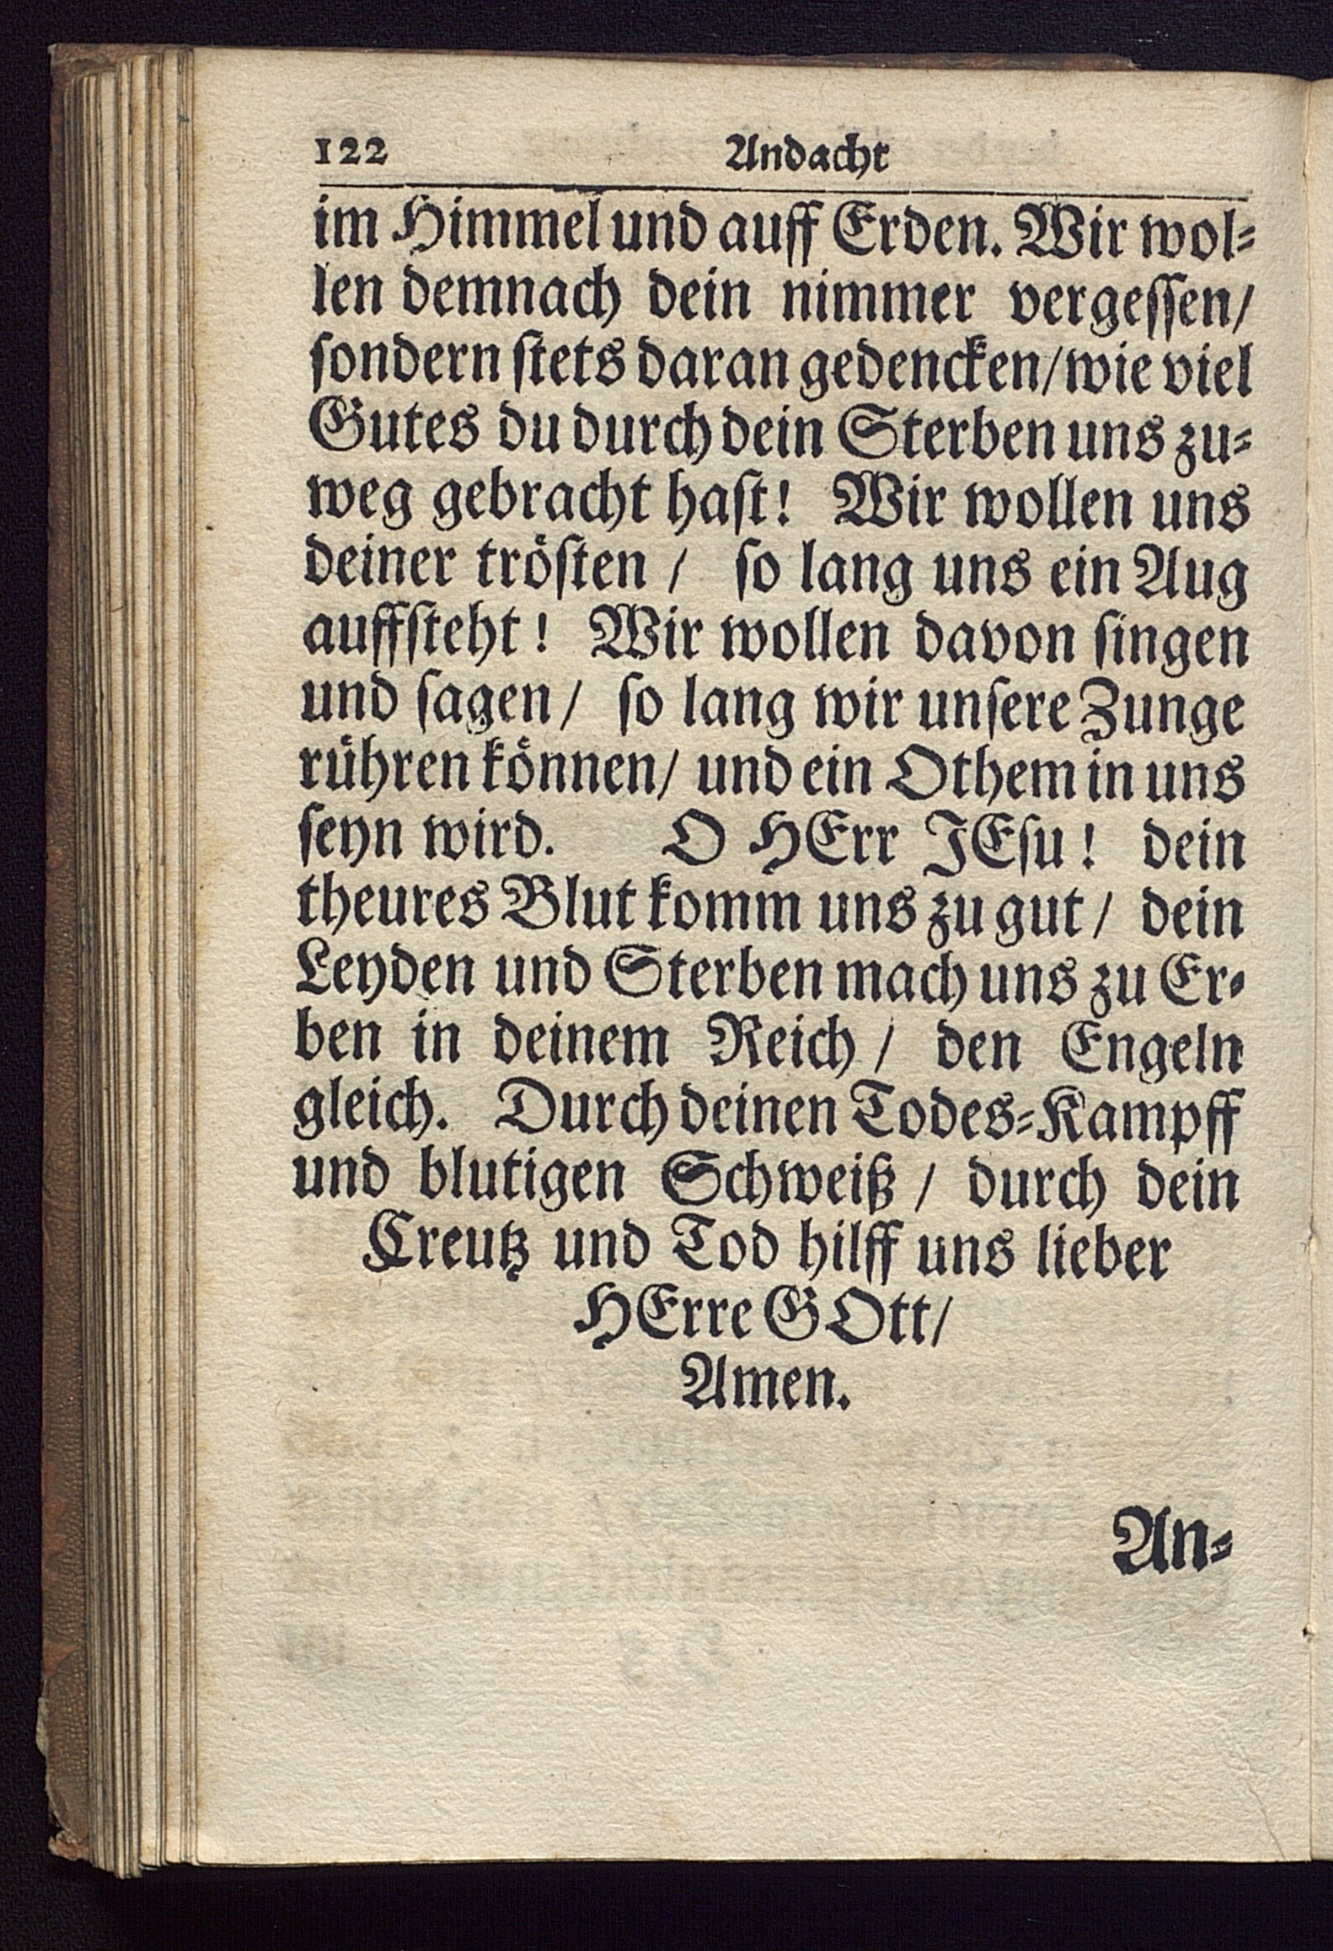 122 Andacht
im Himmel und auff Erden. Wir wol⸗
len demnach dein nimmer vergeſſen/
ſondern ſtets daran gedencken/wie viel
Gutes du durch dein Sterben uns zu⸗
weg gebracht haſt! Wir wollen uns
deiner tröſten / ſo lang uns ein Aug
auffſteht! Wir wollen davon ſingen
und ſagen/ ſo lang wir unſere Zunge
rühren können/ und ein Othem in uns
ſeyn wird. O HErr JEſu! dein
theures Blut komm uns zu gut / dein
Leyden und Sterben mach uns zu Er⸗
ben in deinem Reich / den Engeln
gleich. Durch deinen Todes⸗Kampff
und blutigen Schweiß / durch dein
Creutz und Tod hilff uns lieber
HErre GOtt/
Amen.
An⸗